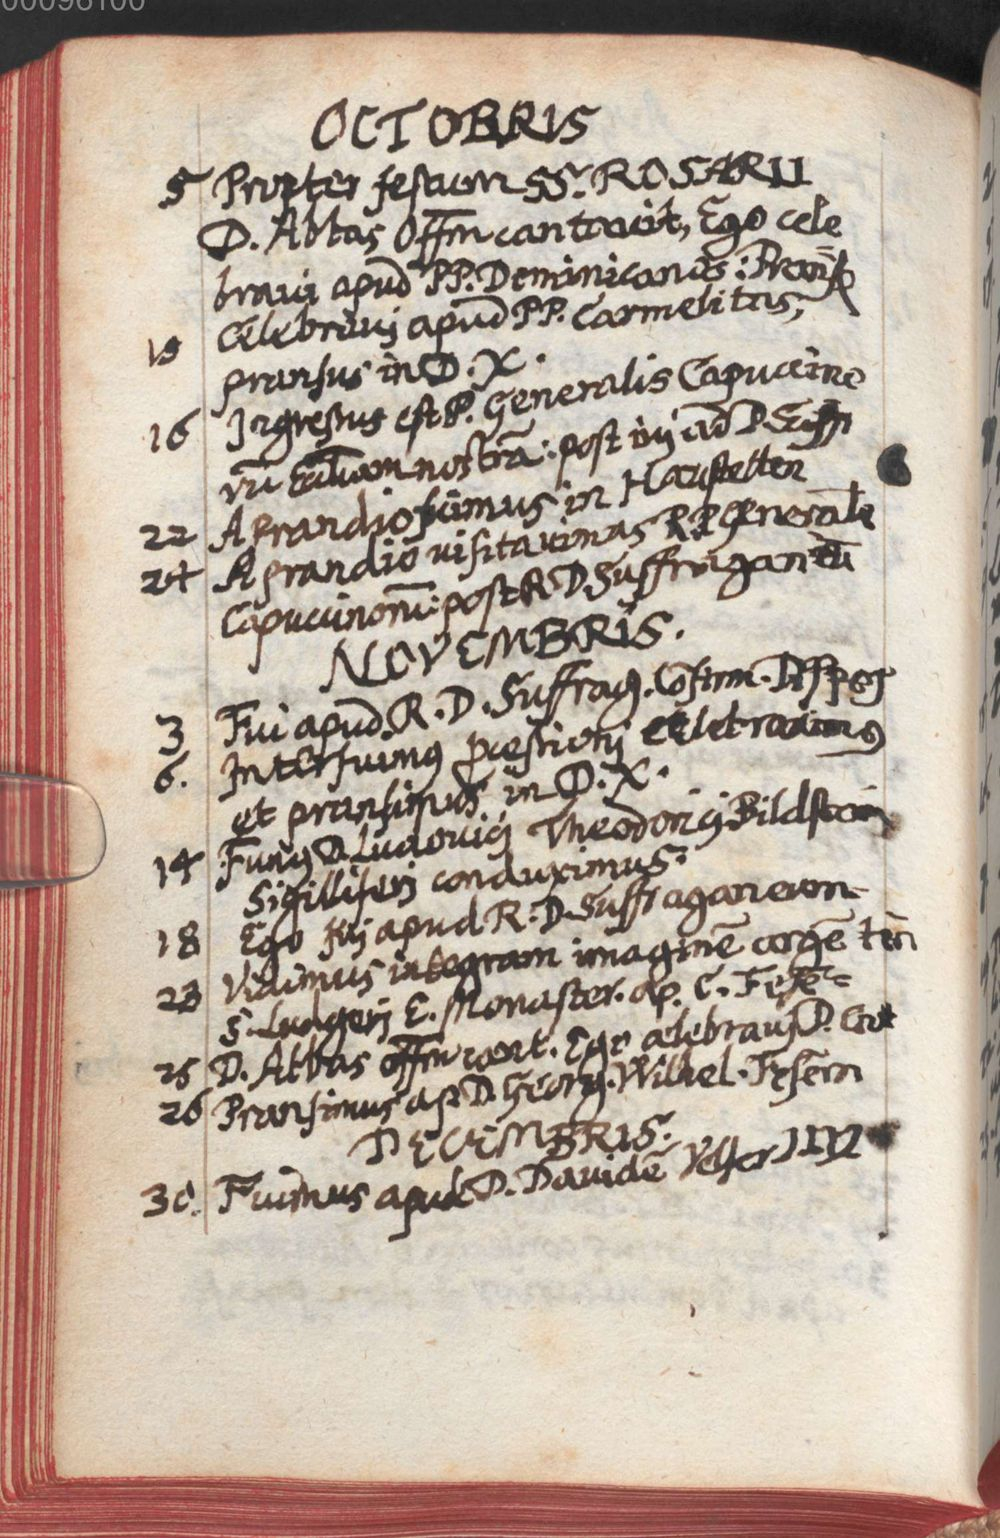 00096100
OCTOBRIS
5 Propter festum SS. ROSARII
D. Abbas Offm cantavit, Ego cele
braui apud PP. Dominicanos:
15 Celebraui apud PP. Carmelitas,
pransus in D. X.
16 Ingressus est P. Generalis Capucino
rū nostrā: post iuj ad D.
22 A prandio fuimus in Haustetten
24 A prandio visitauimus R.P. Generale
Capucinorū: post R. D. Suffraganeū
NOVEMBRIS.
3 Fui apud R. D. Suffrag.
6. Interfuimus celebrauimus
et pransimus in D. X.
14 Funus D. Ludouici Theodorici Bildstein
Sigilliferi conduximus.
18 Ego fuj apud R. D. Suffraganeum.
23 Vidimus integram imaginē
S. E. Monaster.
25 D. Abbas offm cant. Ego celebrauj D.
26 Pransimus ap. D. Georg. Wilhel. Fesern
DECEMBRIS.
30. Fuimus apud D. Dauidē Velser